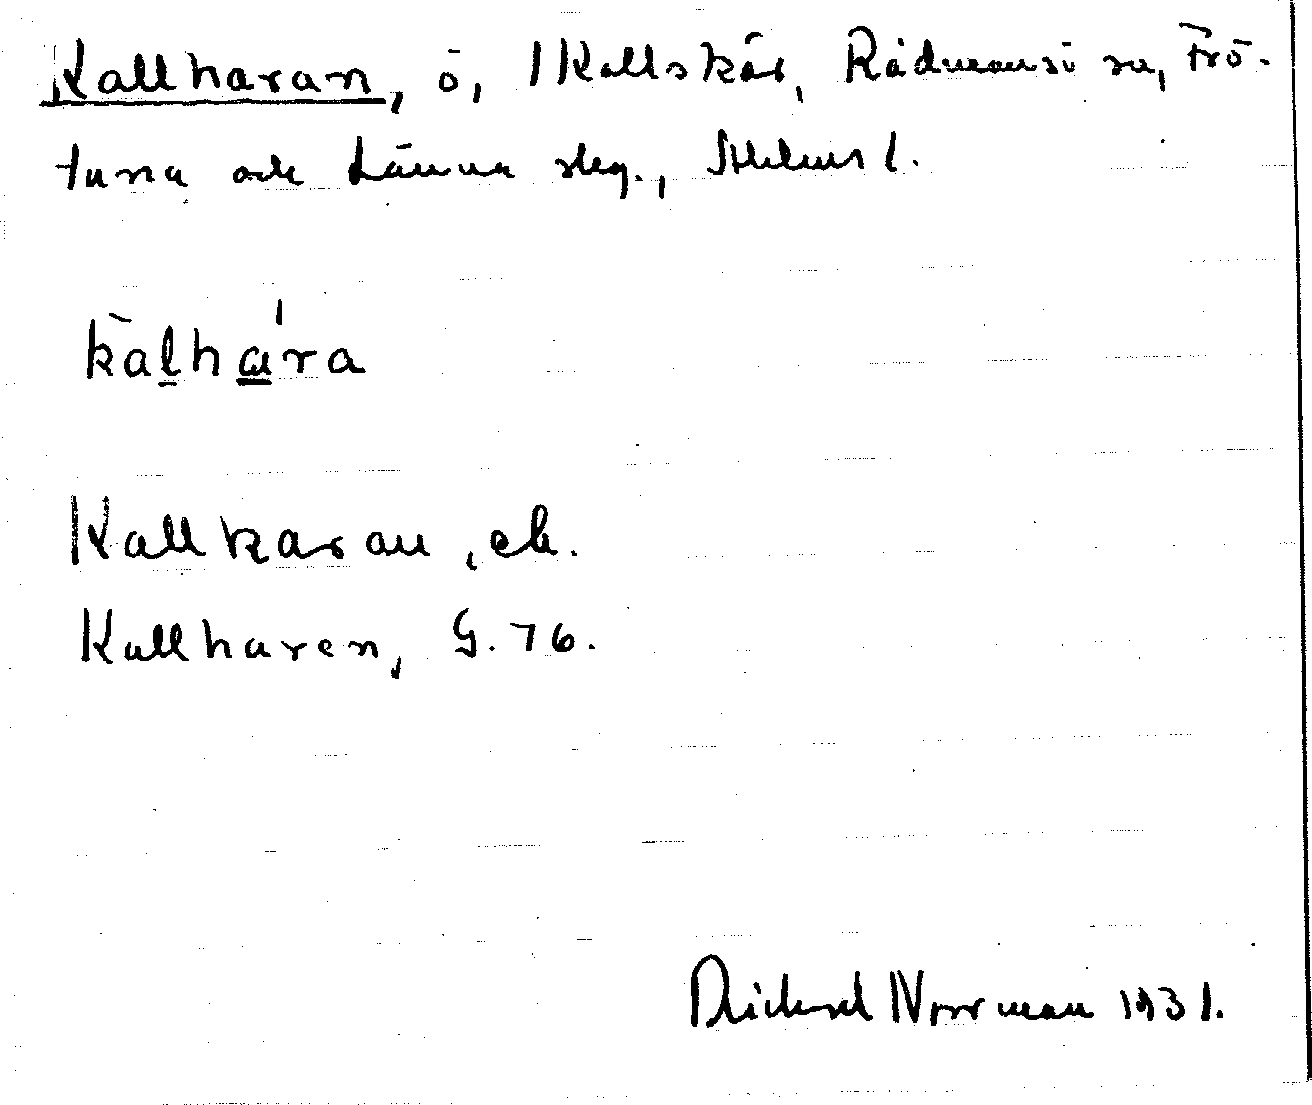 Kallharan, ö, 1 Kallskär, Rådmansö sn, Frö-
tuna och Länna skg., Sthlms l.
kalhára
Kallharan, ek.
Kallharen, G. 76.
Rickard Norrman 1931.